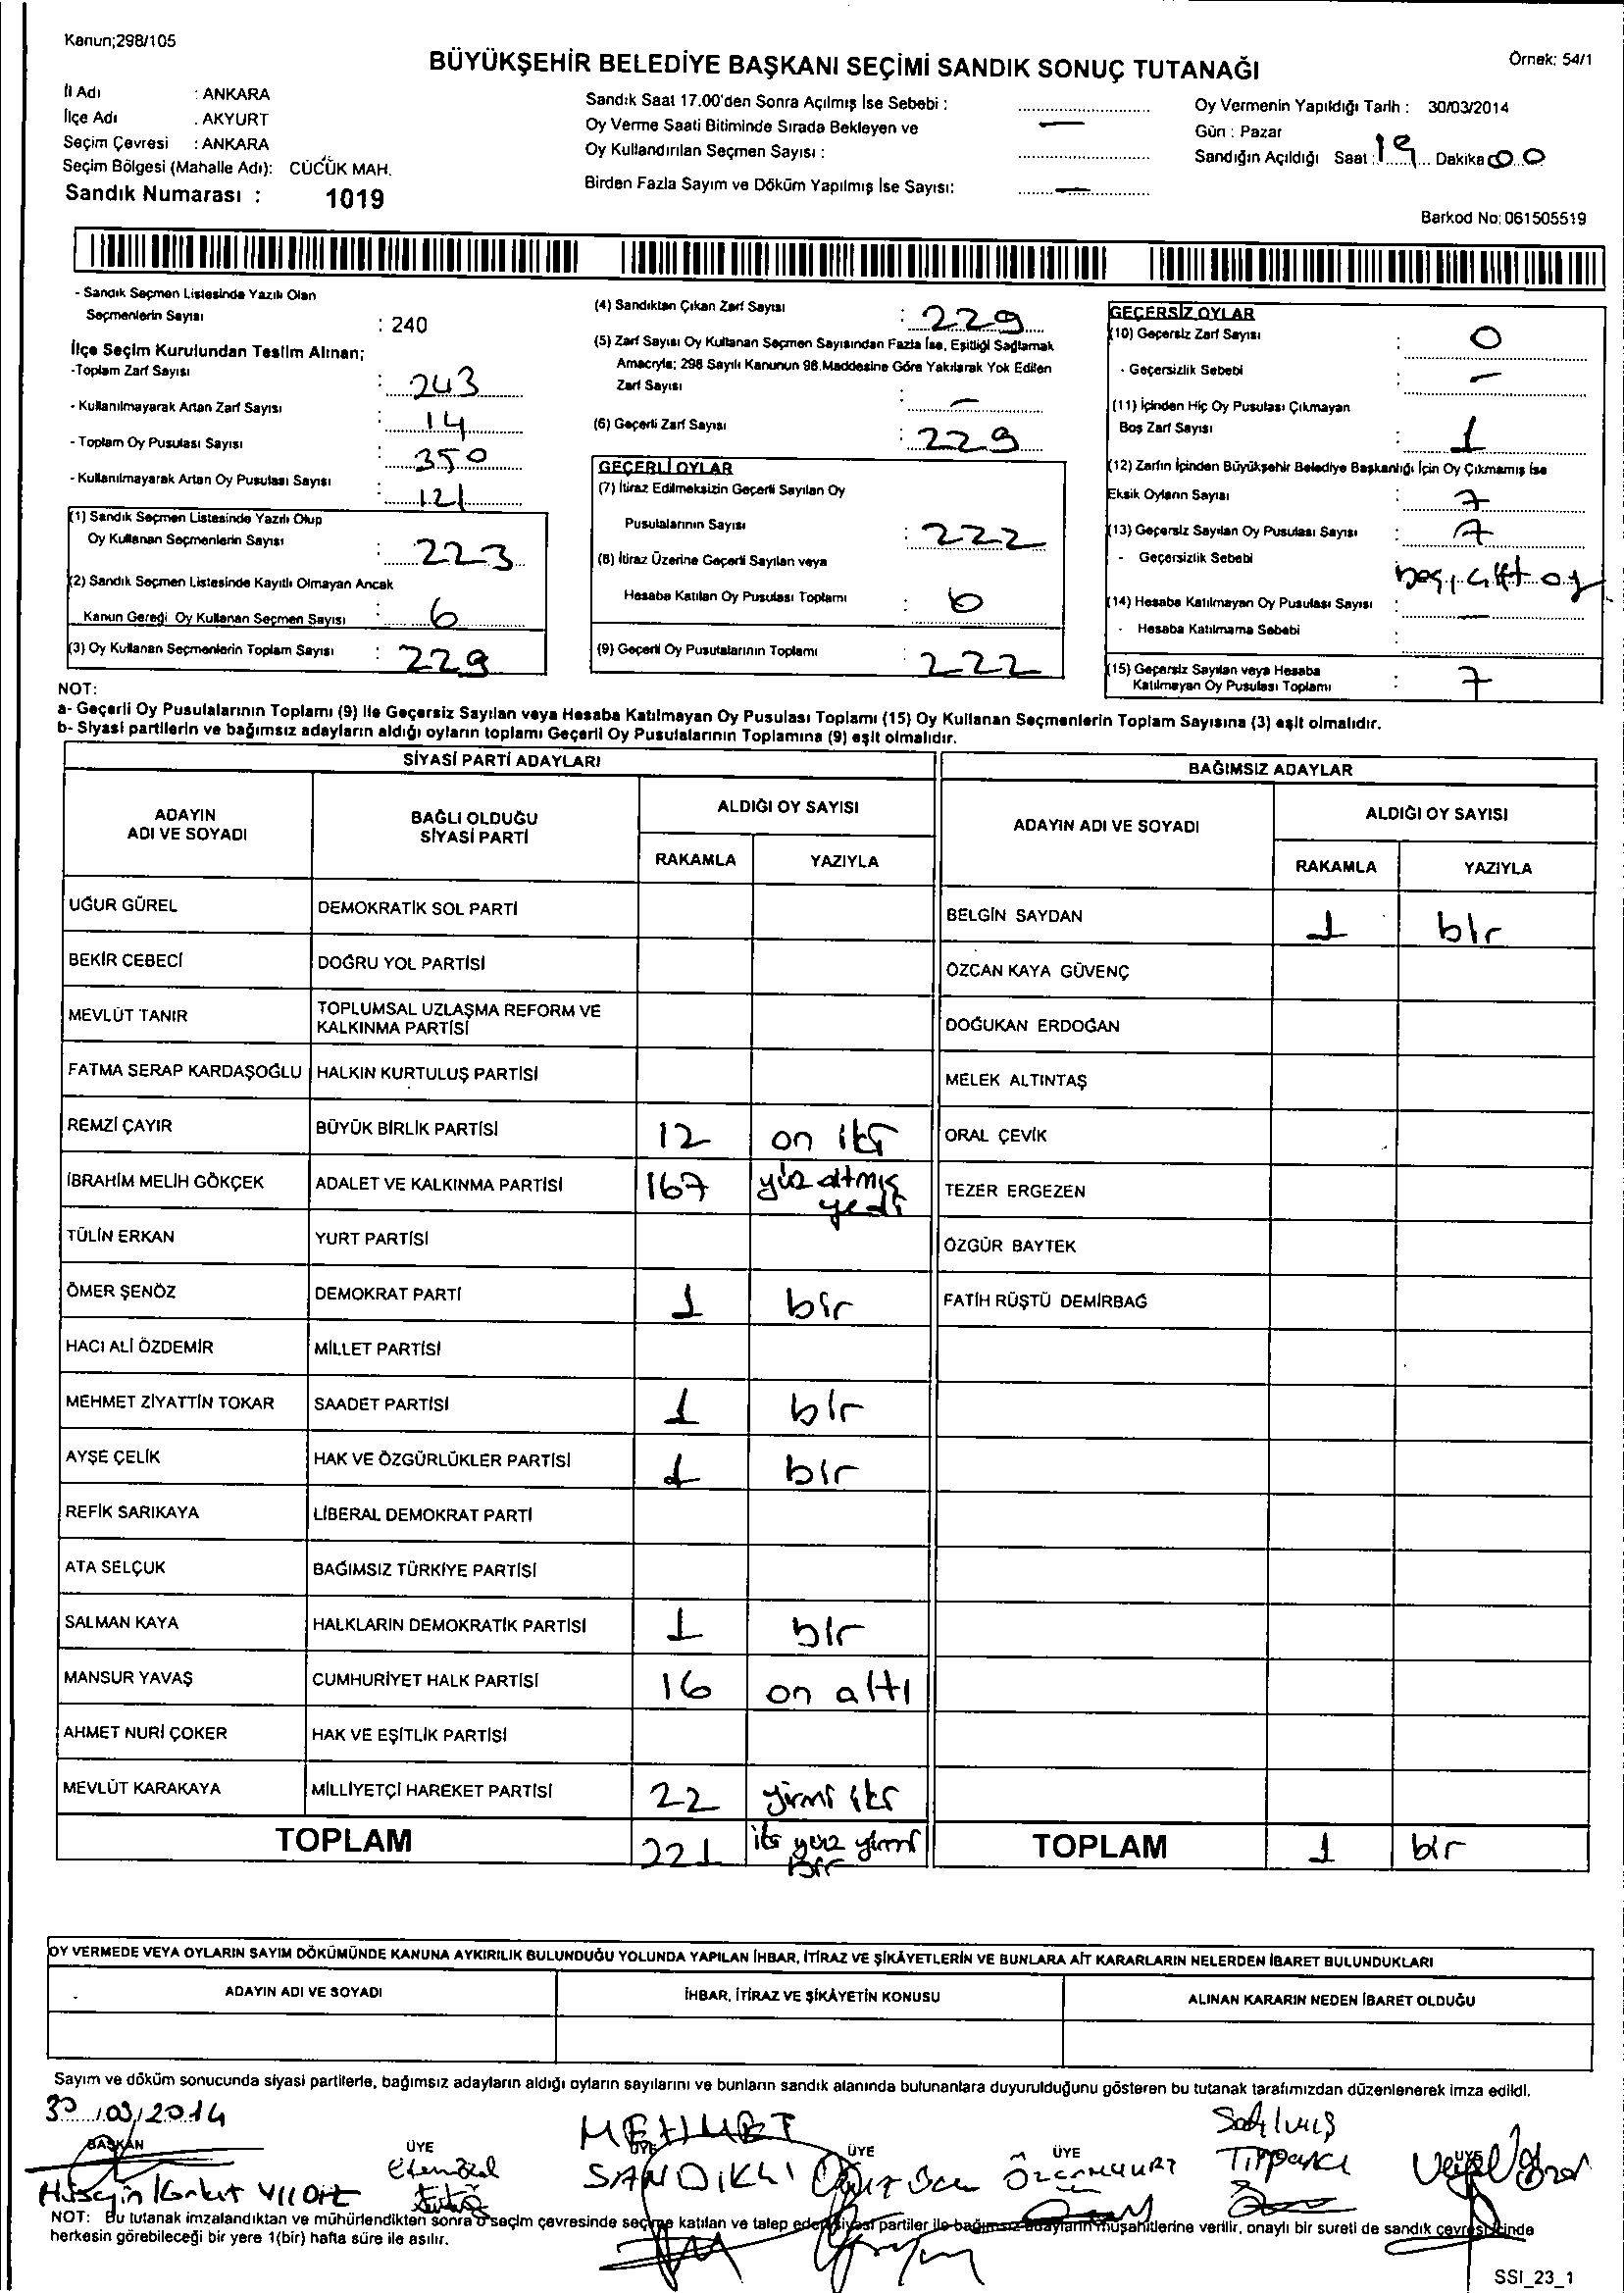 Kanun;298/105
Örnek: 54/1
BÜYÜKŞEHİR BELEDİYE BAŞKANI SEÇİMİ SANDIK SONUÇ TUTANAĞI
İl Adı : ANKARA
İlçe Adı : AKYURT
Seçim Çevresi : ANKARA
Seçim Bölgesi (Mahalle Adı): CÜCÜK MAH.
Sandık Numarası : 1019
Sandık Saat 17.00'den Sonra Açılmış İse Sebebi :
Oy Verme Saati Bitiminde Sırada Bekleyen ve
Oy Kullandırılan Seçmen Sayısı : —
Birden Fazla Sayım ve Döküm Yapılmış İse Sayısı: —
Oy Vermenin Yapıldığı Tarih : 30/03/2014
Gün : Pazar
Sandığın Açıldığı Saat : 19 Dakika 00
Barkod No: 061505519
- Sandık Seçmen Listesinde Yazılı Olan
Seçmenlerin Sayısı : 240
İlçe Seçim Kurulundan Teslim Alınan;
-Toplam Zarf Sayısı : 243
- Kullanılmayarak Artan Zarf Sayısı : 14
- Toplam Oy Pusulası Sayısı : 350
- Kullanılmayarak Artan Oy Pusulası Sayısı : 121
(1) Sandık Seçmen Listesinde Yazılı Olup
Oy Kullanan Seçmenlerin Sayısı : 223
(2) Sandık Seçmen Listesinde Kayıtlı Olmayan Ancak
Kanun Gereği Oy Kullanan Seçmen Sayısı : 6
(3) Oy Kullanan Seçmenlerin Toplam Sayısı : 229
(4) Sandıktan Çıkan Zarf Sayısı : 229
(5) Zarf Sayısı Oy Kullanan Seçmen Sayısından Fazla İse, Eşitliği Sağlamak
Amacıyla; 298 Sayılı Kanunun 98.Maddesine Göre Yakılarak Yok Edilen
Zarf Sayısı : —
(6) Geçerli Zarf Sayısı : 229
GEÇERLİ OYLAR
(7) İtiraz Edilmeksizin Geçerli Sayılan Oy
Pusulalarının Sayısı : 222
(8) İtiraz Üzerine Geçerli Sayılan veya
Hesaba Katılan Oy Pusulası Toplamı : 0
(9) Geçerli Oy Pusulalarının Toplamı : 222
GEÇERSİZ OYLAR
(10) Geçersiz Zarf Sayısı : 0
- Geçersizlik Sebebi : —
(11) İçinden Hiç Oy Pusulası Çıkmayan
Boş Zarf Sayısı : 1
(12) Zarfın İçinden Büyükşehir Belediye Başkanlığı İçin Oy Çıkmamış İse
Eksik Oyların Sayısı : 7
(13) Geçersiz Sayılan Oy Pusulası Sayısı : 7
- Geçersizlik Sebebi boş, çift oy
(14) Hesaba Katılmayan Oy Pusulası Sayısı : —
- Hesaba Katılmama Sebebi :
(15) Geçersiz Sayılan veya Hesaba
Katılmayan Oy Pusulası Toplamı : 7
NOT:
a- Geçerli Oy Pusulalarının Toplamı (9) ile Geçersiz Sayılan veya Hesaba Katılmayan Oy Pusulası Toplamı (15) Oy Kullanan Seçmenlerin Toplam Sayısına (3) eşit olmalıdır.
b- Siyasi partilerin ve bağımsız adayların aldığı oyların toplamı Geçerli Oy Pusulalarının Toplamına (9) eşit olmalıdır.
SİYASİ PARTİ ADAYLARI
ADAYIN ADI VE SOYADI BAĞLI OLDUĞU SİYASİ PARTİ ALDIĞI OY SAYISI
RAKAMLA YAZIYLA
UĞUR GÜREL DEMOKRATİK SOL PARTİ
BEKİR CEBECİ DOĞRU YOL PARTİSİ
MEVLÜT TANIR TOPLUMSAL UZLAŞMA REFORM VE KALKINMA PARTİSİ
FATMA SERAP KARDAŞOĞLU HALKIN KURTULUŞ PARTİSİ
REMZİ ÇAYIR BÜYÜK BİRLİK PARTİSİ 12 on iki
İBRAHİM MELİH GÖKÇEK ADALET VE KALKINMA PARTİSİ 167 yüz altmış yedi
TÜLİN ERKAN YURT PARTİSİ
ÖMER ŞENÖZ DEMOKRAT PARTİ 1 bir
HACI ALİ ÖZDEMİR MİLLET PARTİSİ
MEHMET ZİYATTİN TOKAR SAADET PARTİSİ 1 bir
AYŞE ÇELİK HAK VE ÖZGÜRLÜKLER PARTİSİ 1 bir
REFİK SARIKAYA LİBERAL DEMOKRAT PARTİ
ATA SELÇUK BAĞIMSIZ TÜRKİYE PARTİSİ
SALMAN KAYA HALKLARIN DEMOKRATİK PARTİSİ 1 bir
MANSUR YAVAŞ CUMHURİYET HALK PARTİSİ 16 on altı
AHMET NURİ ÇOKER HAK VE EŞİTLİK PARTİSİ
MEVLÜT KARAKAYA MİLLİYETÇİ HAREKET PARTİSİ 22 yirmi iki
TOPLAM 221 iki yüz yirmi bir
BAĞIMSIZ ADAYLAR
ADAYIN ADI VE SOYADI ALDIĞI OY SAYISI
RAKAMLA YAZIYLA
BELGİN SAYDAN 1 bir
ÖZCAN KAYA GÜVENÇ
DOĞUKAN ERDOĞAN
MELEK ALTINTAŞ
ORAL ÇEVİK
TEZER ERGEZEN
ÖZGÜR BAYTEK
FATİH RÜŞTÜ DEMİRBAĞ
TOPLAM 1 bir
OY VERMEDE VEYA OYLARIN SAYIM DÖKÜMÜNDE KANUNA AYKIRILIK BULUNDUĞU YOLUNDA YAPILAN İHBAR, İTİRAZ VE ŞİKÂYETLERİN VE BUNLARA AİT KARARLARIN NELERDEN İBARET BULUNDUKLARI
ADAYIN ADI VE SOYADI İHBAR, İTİRAZ VE ŞİKÂYETİN KONUSU ALINAN KARARIN NEDEN İBARET OLDUĞU
Sayım ve döküm sonucunda siyasi partilerle, bağımsız adayların aldığı oyların sayılarını ve bunların sandık alanında bulunanlara duyurulduğunu gösteren bu tutanak tarafımızdan düzenlenerek imza edildi.
30/03/2014
BAŞKAN ÜYE ÜYE ÜYE ÜYE ÜYE
Hüseyin
MEHMET SANDIKLI
Satılmış
Veysel
NOT: Bu tutanak imzalandıktan ve mühürlendikten sonra o seçim çevresinde seçime katılan ve talep eden siyasi partiler ile bağımsız adayların müşahitlerine verilir, onaylı bir sureti de sandık çevresi içinde
herkesin görebileceği bir yere 1(bir) hafta süre ile asılır.
SSI_23_1